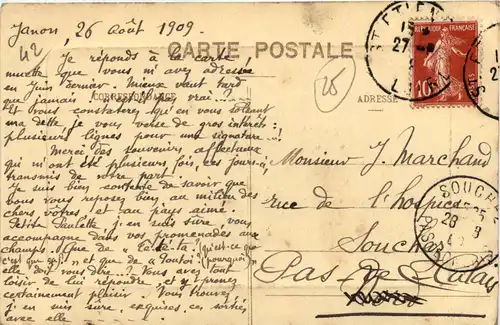 Janon, 26 août 1909
42
CARTE POSTALE
Je réponds à la carte
muette que vous m'avez adressée
en Juin dernier. Mieux vaut tard
que jamais vrai...
CORRESPONDANCE
Et vous constaterez qu'en vous soldant
ma dette je vous verse de gros intérêts :
plusieurs lignes pour une signature...!
Merci des souvenirs affectueux
qui m'ont été plusieurs fois, ces jours-ci
transmis de votre part.
Je suis bien contente de savoir que
vous vous reposez bien au milieu des
chers vôtres et au pays aimé.
Petite Paulette j'en suis sûre, vous
accompagne dans vos promenades aux
champs. Que de "qu'est-ce que
c'est que ça ?" et que de "pourquoi"
elle doit vous dire...? Vous avez tout
loisir de lui répondre, et y prenez
certainement plaisir. Vous trouvez
j'en suis sûre, exquises, ces sorties
avec elle
26
ADRESSE
Monsieur J. Marchand
rue de l'hospice
Souchez
Pas-de-Calais
REPUBLIQUE FRANÇAISE
10c
POSTES
ST ETIENNE
27
SOUCHEZ
28 8